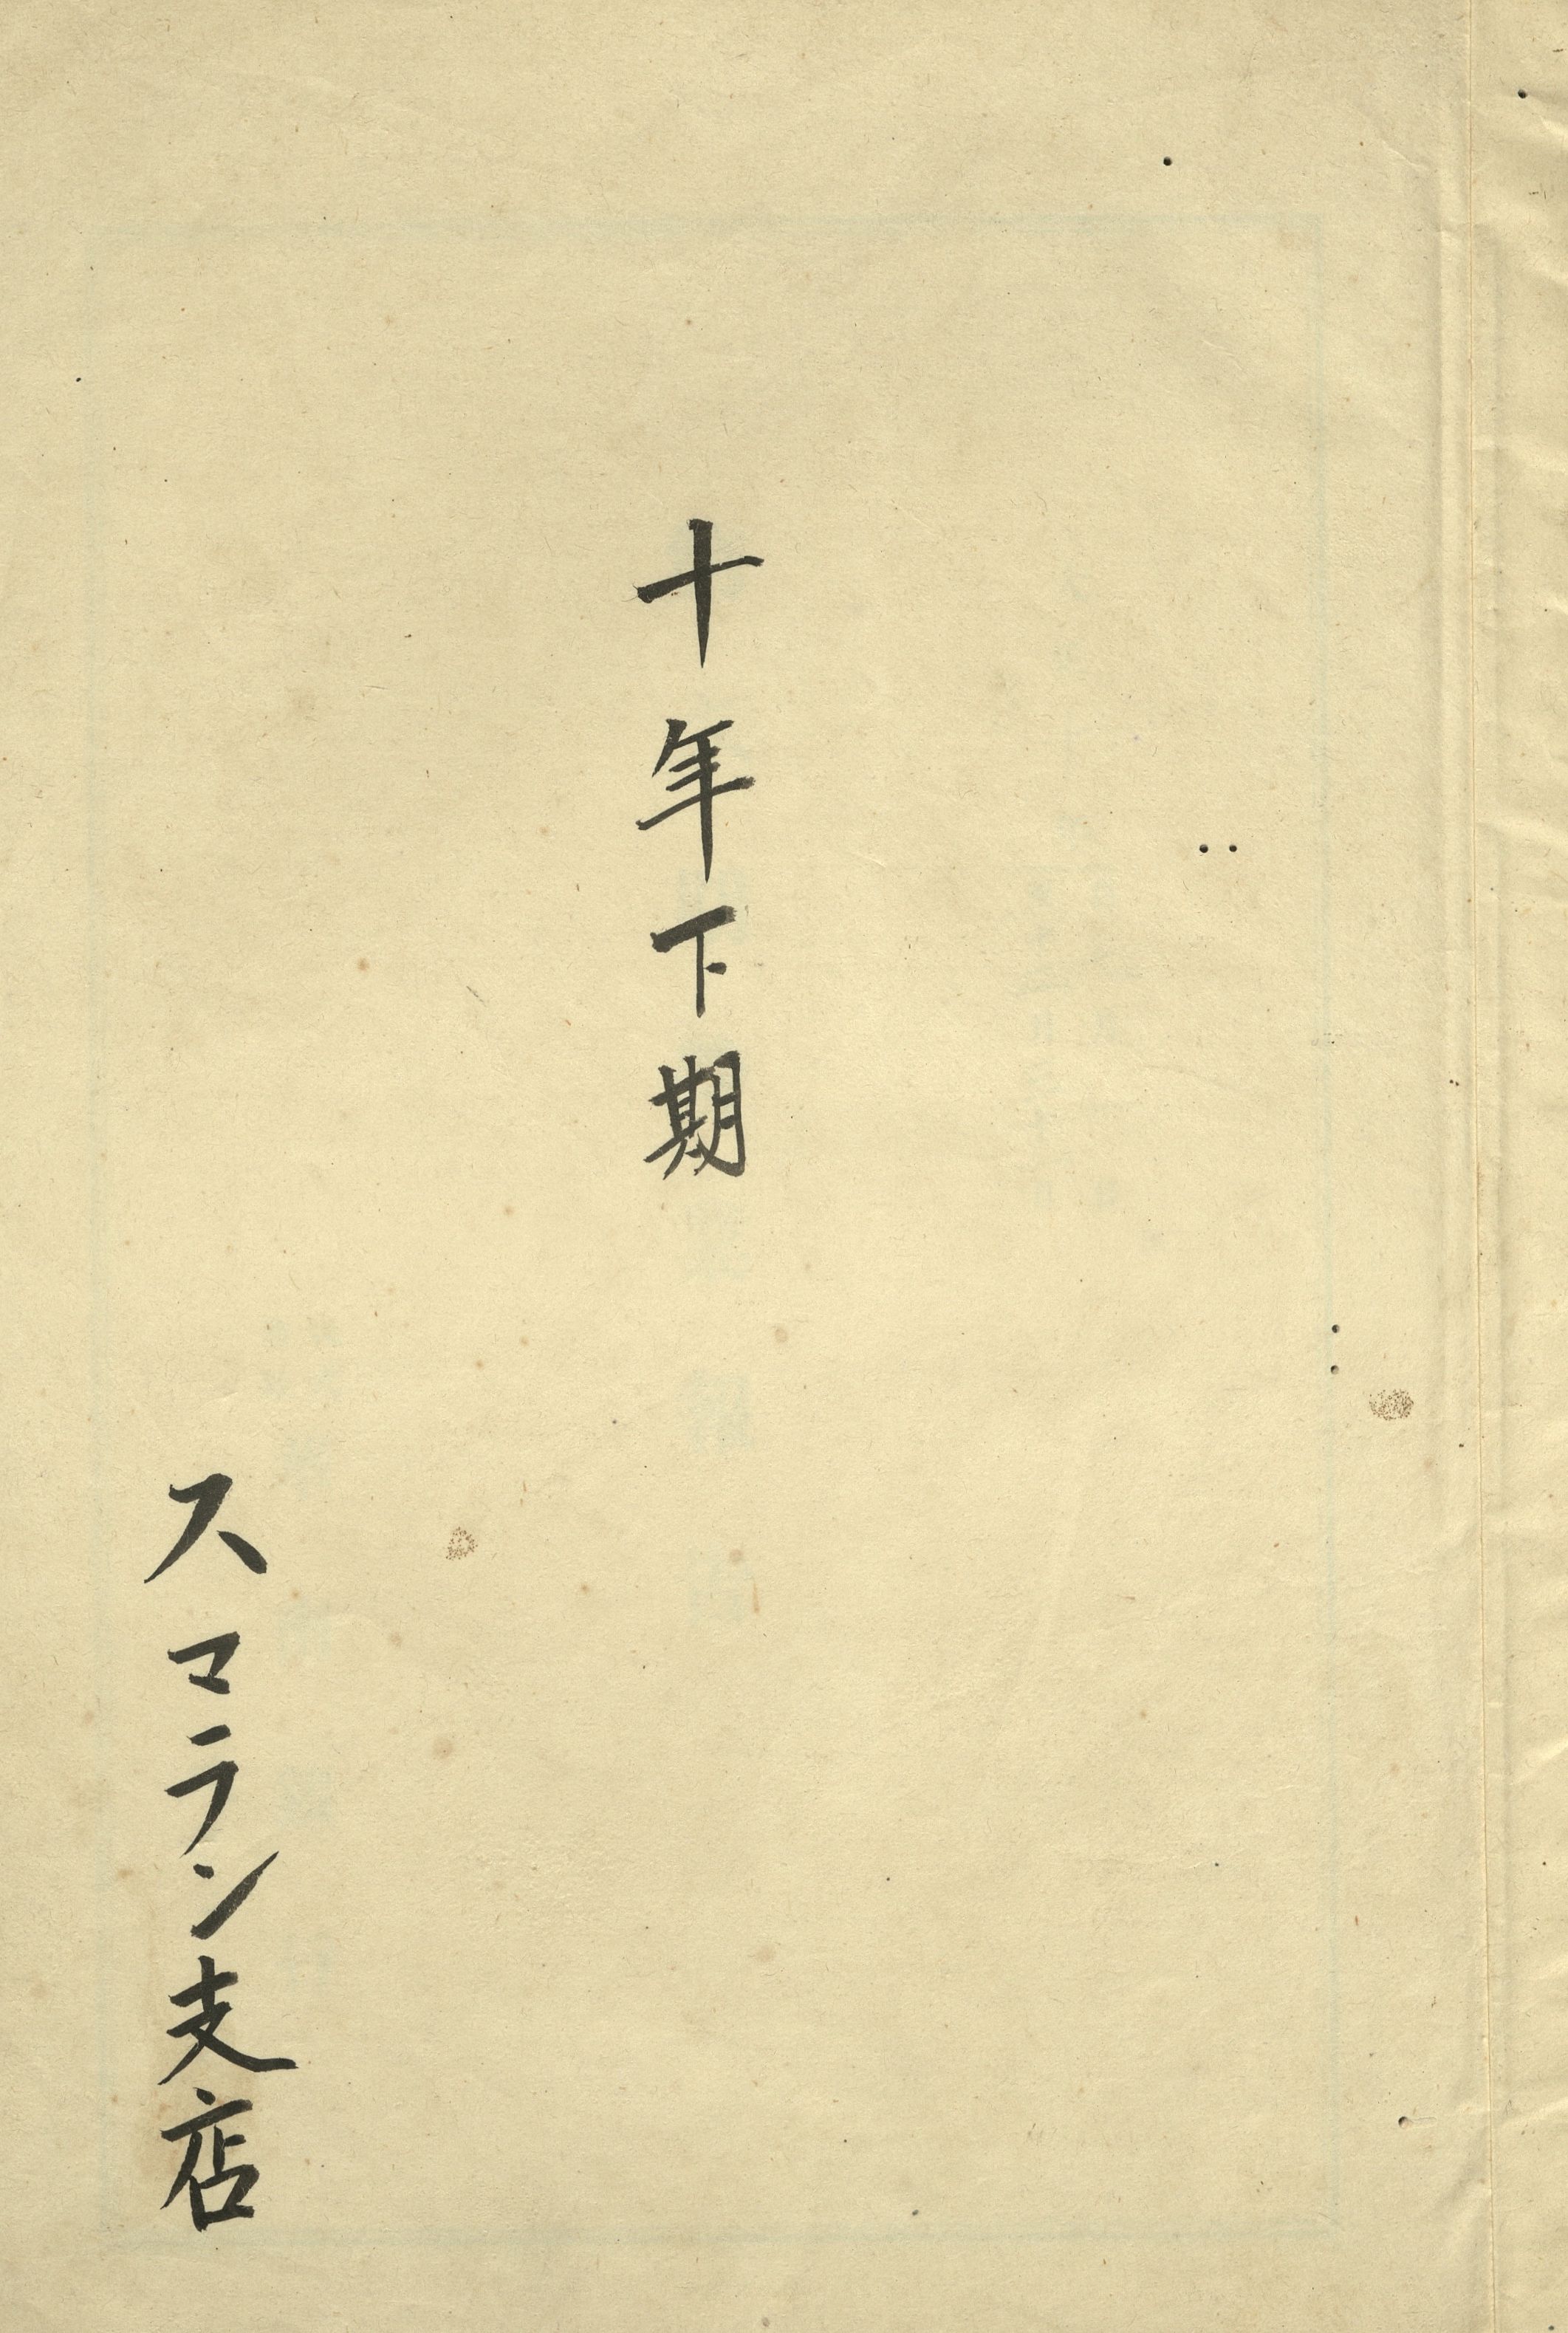 十年下期
スマラン支店